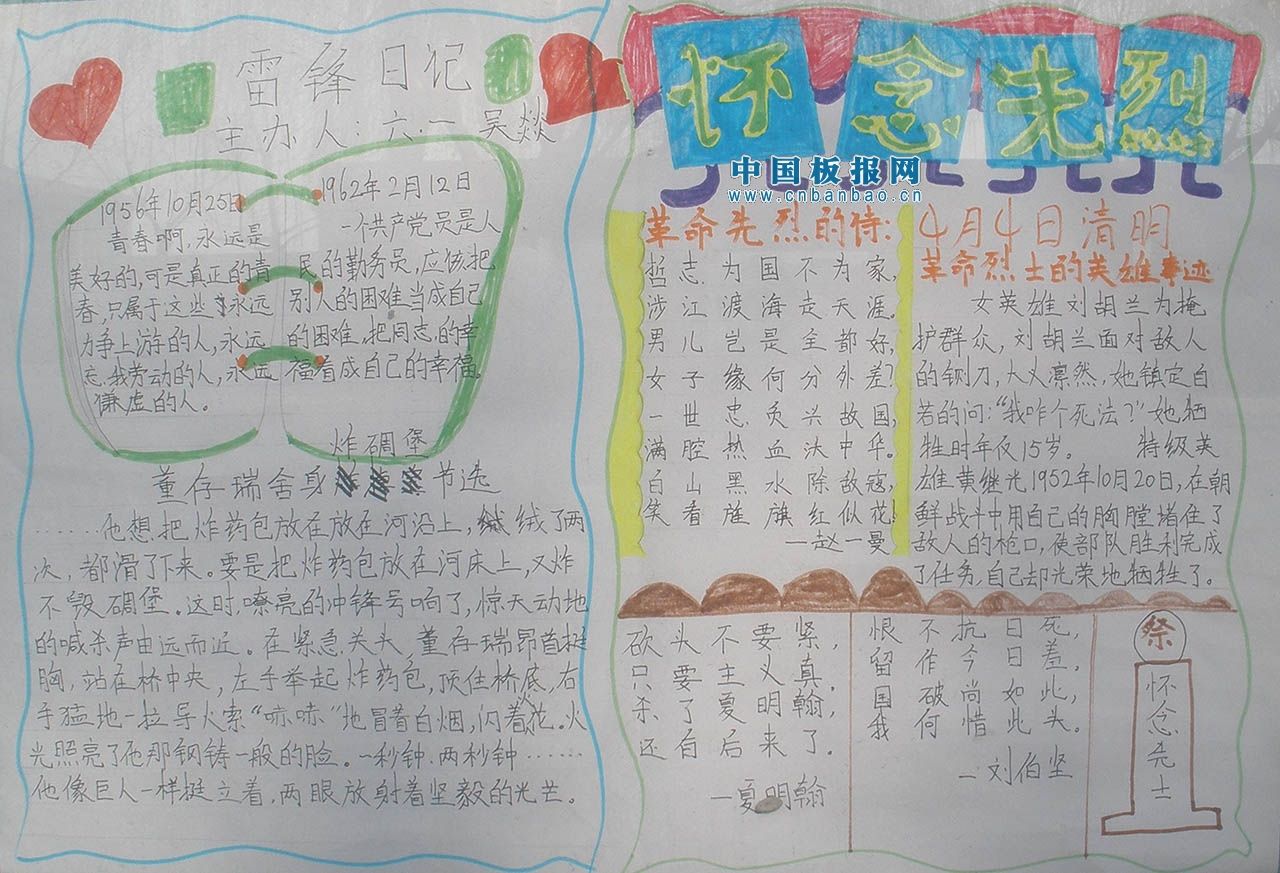 雷锋日记
主办人：六.一 吴燚
1956年10月25日
青春啊，永远是
美好的，可是真正的青
春，只属于这些永远
力争上游的人，永远
忘我劳动的人，永远
谦虚的人。
1962年2月12日
一个共产党员是人
民的勤务员，应该把
别人的困难当成自己
的困难，把同志的幸
福看成自己的幸福。
炸碉堡
董存瑞舍身 节选
……他想把炸药包放在放在河沿上，绒了两
次，都滑了下来。要是把炸药包放在河床上，又炸
不毁碉堡。这时，嘹亮的冲锋号响了，惊天动地
的喊杀声由远而近。在紧急关头，董存瑞昂首挺
胸，站在桥中央，左手举起炸药包，顶住桥底，右
手猛地一拉导火索“哧哧”地冒着白烟，闪着火花。火
光照亮了他那钢铸一般的脸。一秒钟.两秒钟……
他像巨人一样挺立着，两眼放射着坚毅的光芒。
怀念先烈
中国板报网
www.cnbanbao.cn
革命先烈的侍：
哲志为国不为家，
涉江渡海走天涯。
男儿岂是全都好，
女子缘何分外差？
一世忠负兴故国，
满腔热血沃中华。
白山黑水除敌寇，
笑看旌旗红似花！
—赵一曼
4月4日清明
革命烈士的英雄事迹
女英雄刘胡兰为掩
护群众，刘胡兰面对敌人
的铡刀，大义凛然，她镇定自
若的问：“我咋个死法？”她牺
牲时年仅15岁。 特级英
雄黄继光1952年10月20日，在朝
鲜战斗中用自己的胸膛堵住了
敌人的枪口，使部队胜利完成
了任务，自己却光荣地牺牲了。
砍头不要紧，
只要主义真，
杀了夏明翰，
还自后来了。
—夏明翰
恨不抗日死，
留作今日羞，
国破尚如此，
我何惜此头。
—刘伯坚
祭
怀念先士